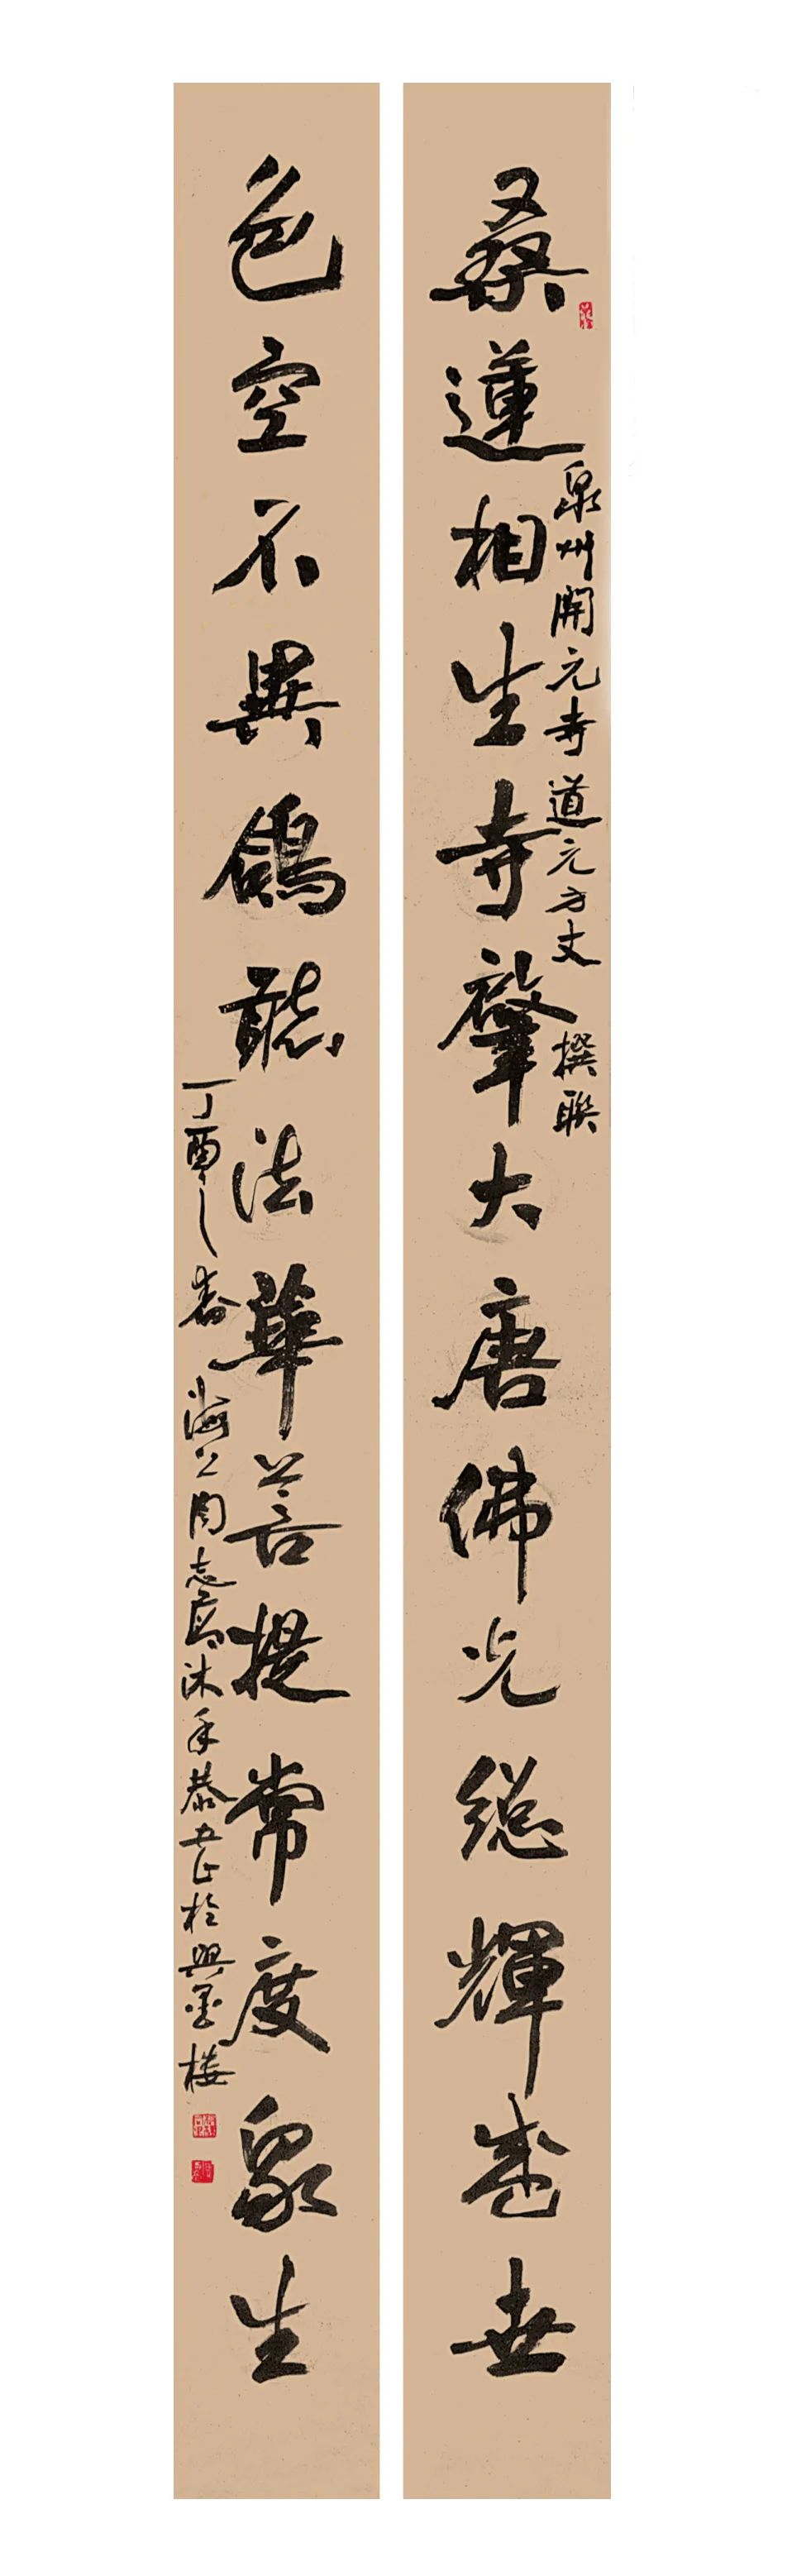 桑蓮相生寺肇大唐佛光總輝盛世
泉州開元寺道元方丈撰聯
色空不異鴿聽法華菩提常度眾生
丁酉之春海上周志高沐手恭書於興墨樓